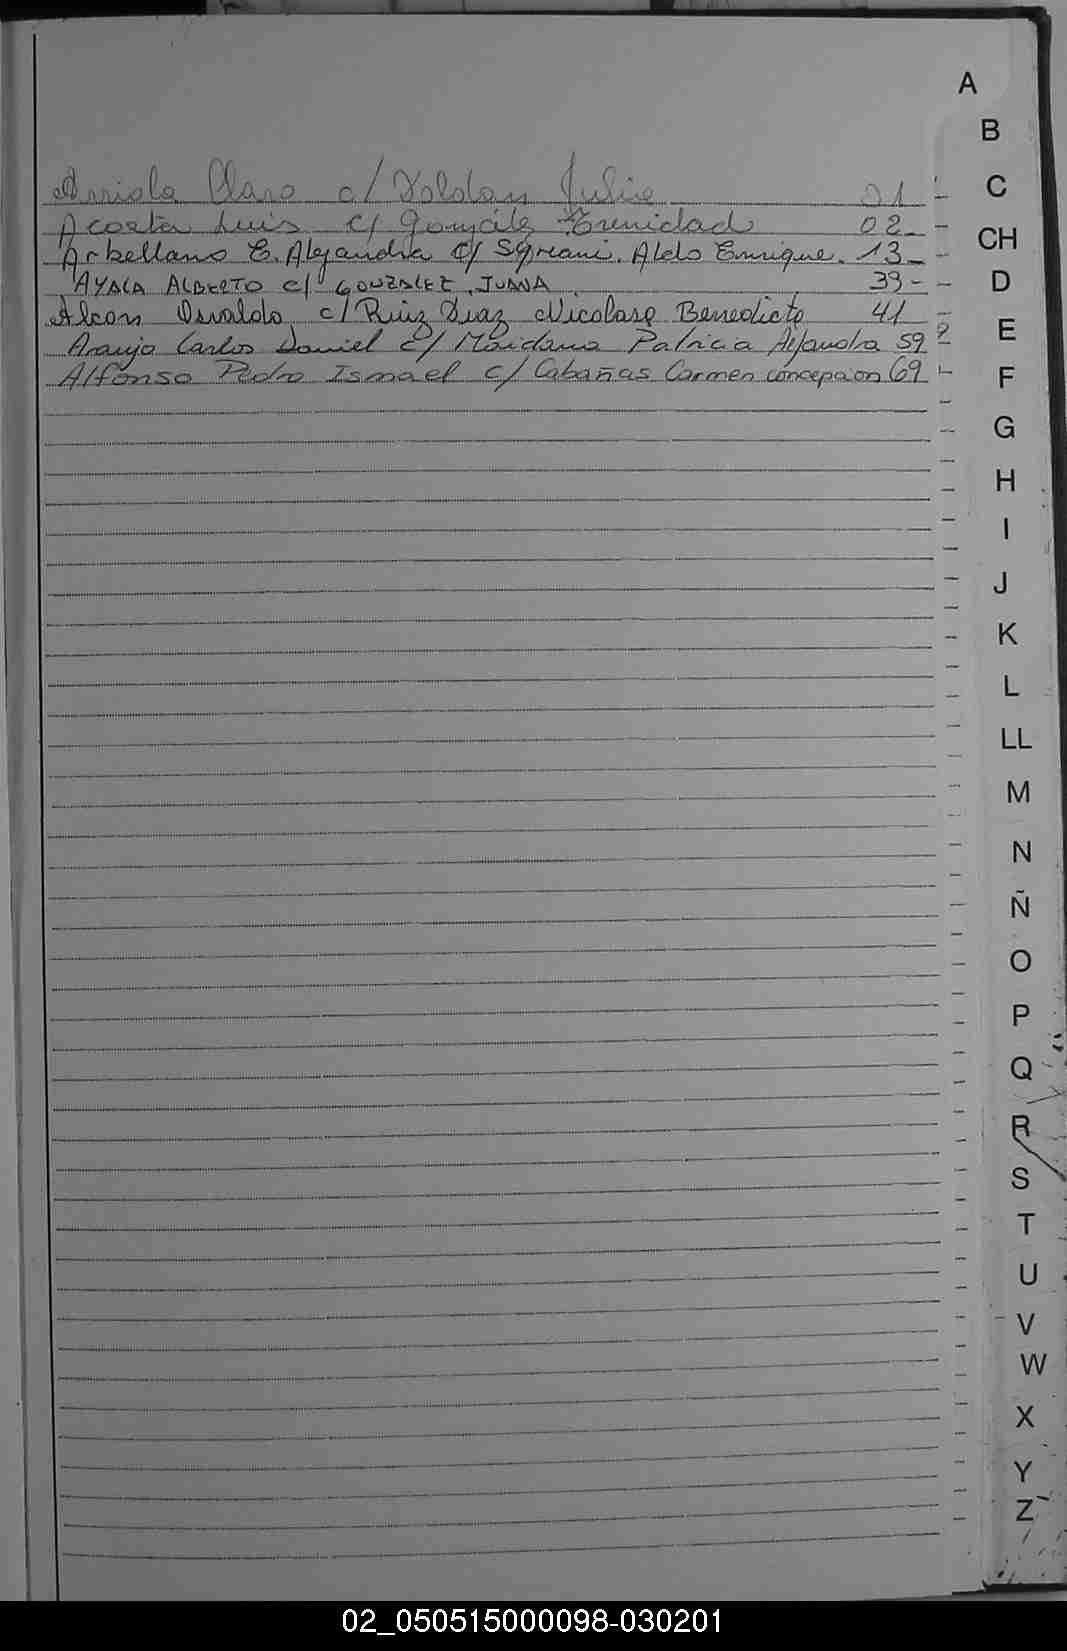 Arriola Claro c/ Roldan Julia 01 -
Acosta Luis c/ González Trenidad 02 -
Arbellano E. Alejandra c/ Aldo Enrique. 13 -
AYALA ALBERTO c/ GONZALEZ, JUANA 39 -
Alcon Osvaldo c/ Ruiz Diaz Nicolasa Benedicta 41
Araujo Carlos Daniel c/ Maidana Patricia Alejandra 59
Alfonso Pedro Ismael c/ Cabañas Carmen concepcion 69
A
B
C
CH
D
E
F
G
H
I
J
K
L
LL
M
N
Ñ
O
P
Q
R
S
T
U
V
W
X
Y
Z
02_050515000098-030201